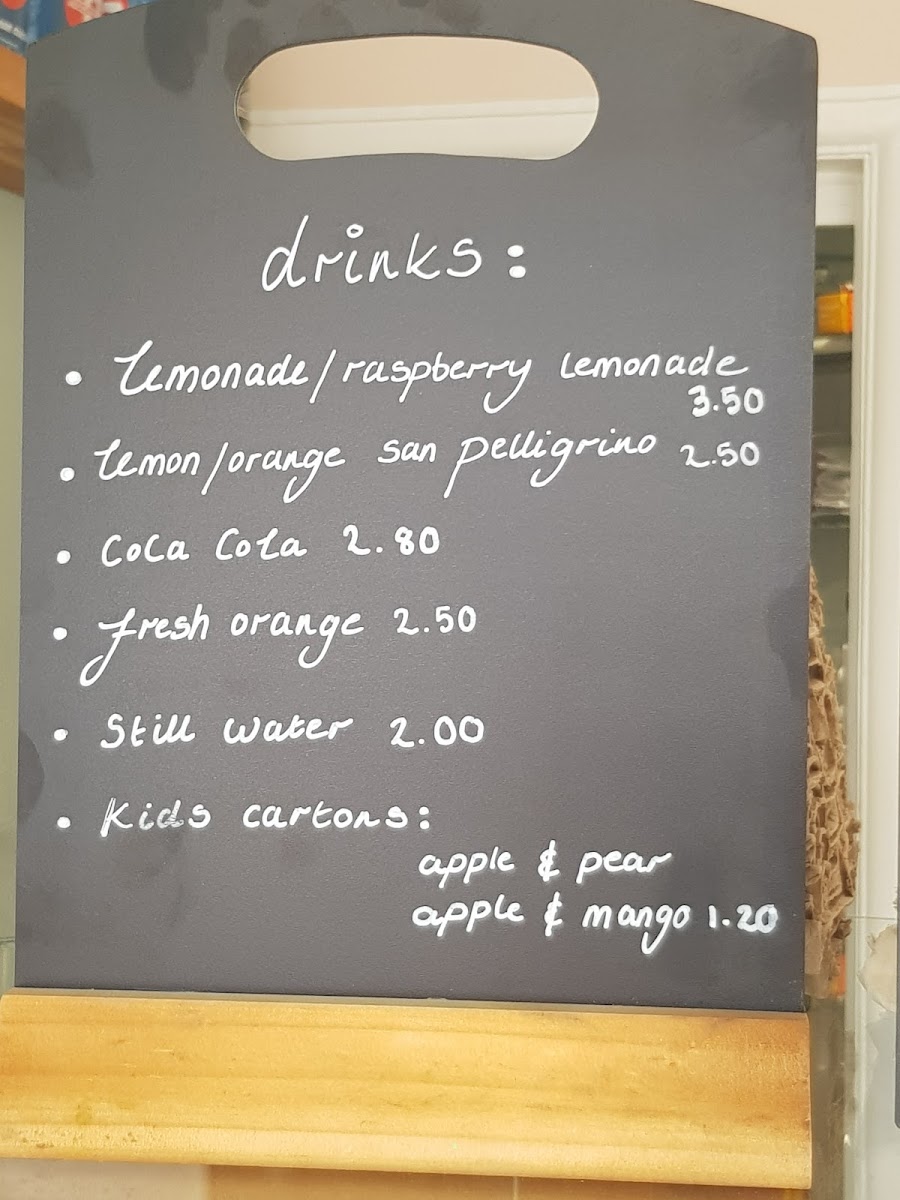 drinks:
• Lemonade/raspberry lemonade
3.50
• lemon/orange san pelligrino 2.50
• Coca Cola 2.80
• fresh orange 2.50
• Still water 2.00
• Kids cartons:
apple & pear
apple & mango 1.20